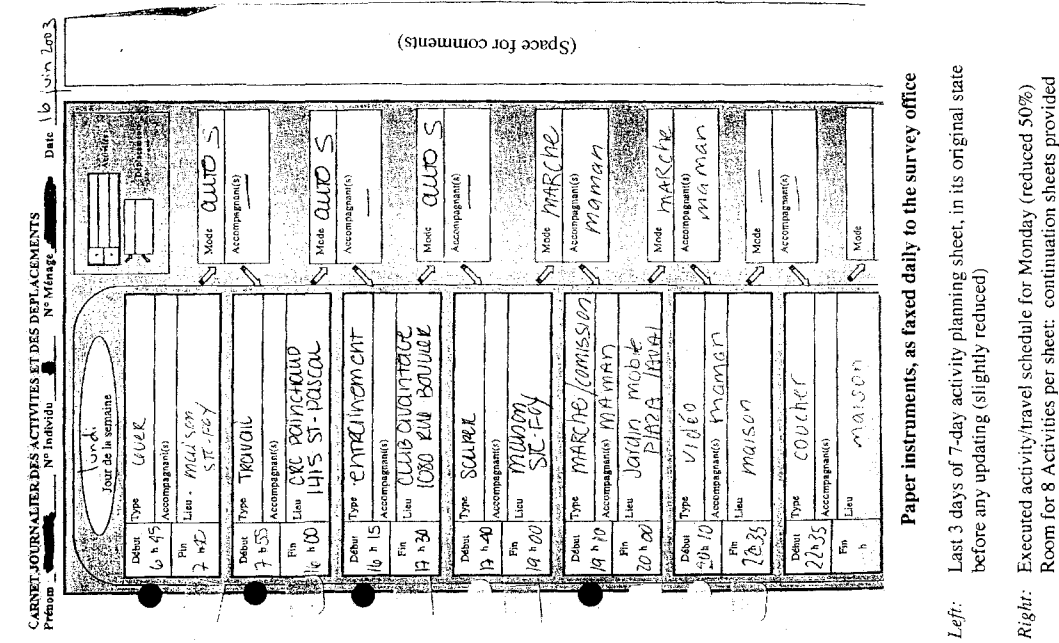 CARNET JOURNALIER DES ACTIVITES ET DES DEPLACEMENTS
Prénom N° Individu N° Ménage Date 16 juin 2003
lundi
Jour de la semaine
Activités
Déplacements
Début 6 h 45
Fin 7 h
Type LEVER
Accompagnant(s)
Lieu maison
STE-FOY
Mode auto S
Accompagnant(s) —
Début 7 h 55
Fin 16 h 00
Type TRAVAIL
Accompagnant(s)
Lieu CRC
1415 ST-PASCAL
Mode auto S
Accompagnant(s) —
Début 16 h 15
Fin 17 h 30
Type entrainement
Accompagnant(s)
Lieu CLUB avantage
1080 RUE BOUVIER
Mode auto S
Accompagnant(s) —
Début 17 h 40
Fin 19 h 00
Type souper
Accompagnant(s)
Lieu maison
STE-FOY
Mode MARche
Accompagnant(s) maman
Début 19 h 10
Fin 20 h 00
Type MARche/comission
Accompagnant(s) MAMAN
Lieu Jardin mobile
PLAZA LAVAL
Mode MARche
Accompagnant(s) maman
Début 20 h 10
Fin 22 h 35
Type vidéo
Accompagnant(s) maman
Lieu maison
Mode —
Accompagnant(s) —
Début 22 h 35
Fin h
Type coucher
Accompagnant(s)
Lieu maison
Mode
(Space for comments)
Paper instruments, as faxed daily to the survey office
Left: Last 3 days of 7-day activity planning sheet, in its original state
before any updating (slightly reduced)
Right: Executed activity/travel schedule for Monday (reduced 50%)
Room for 8 Activities per sheet: continuation sheets provided